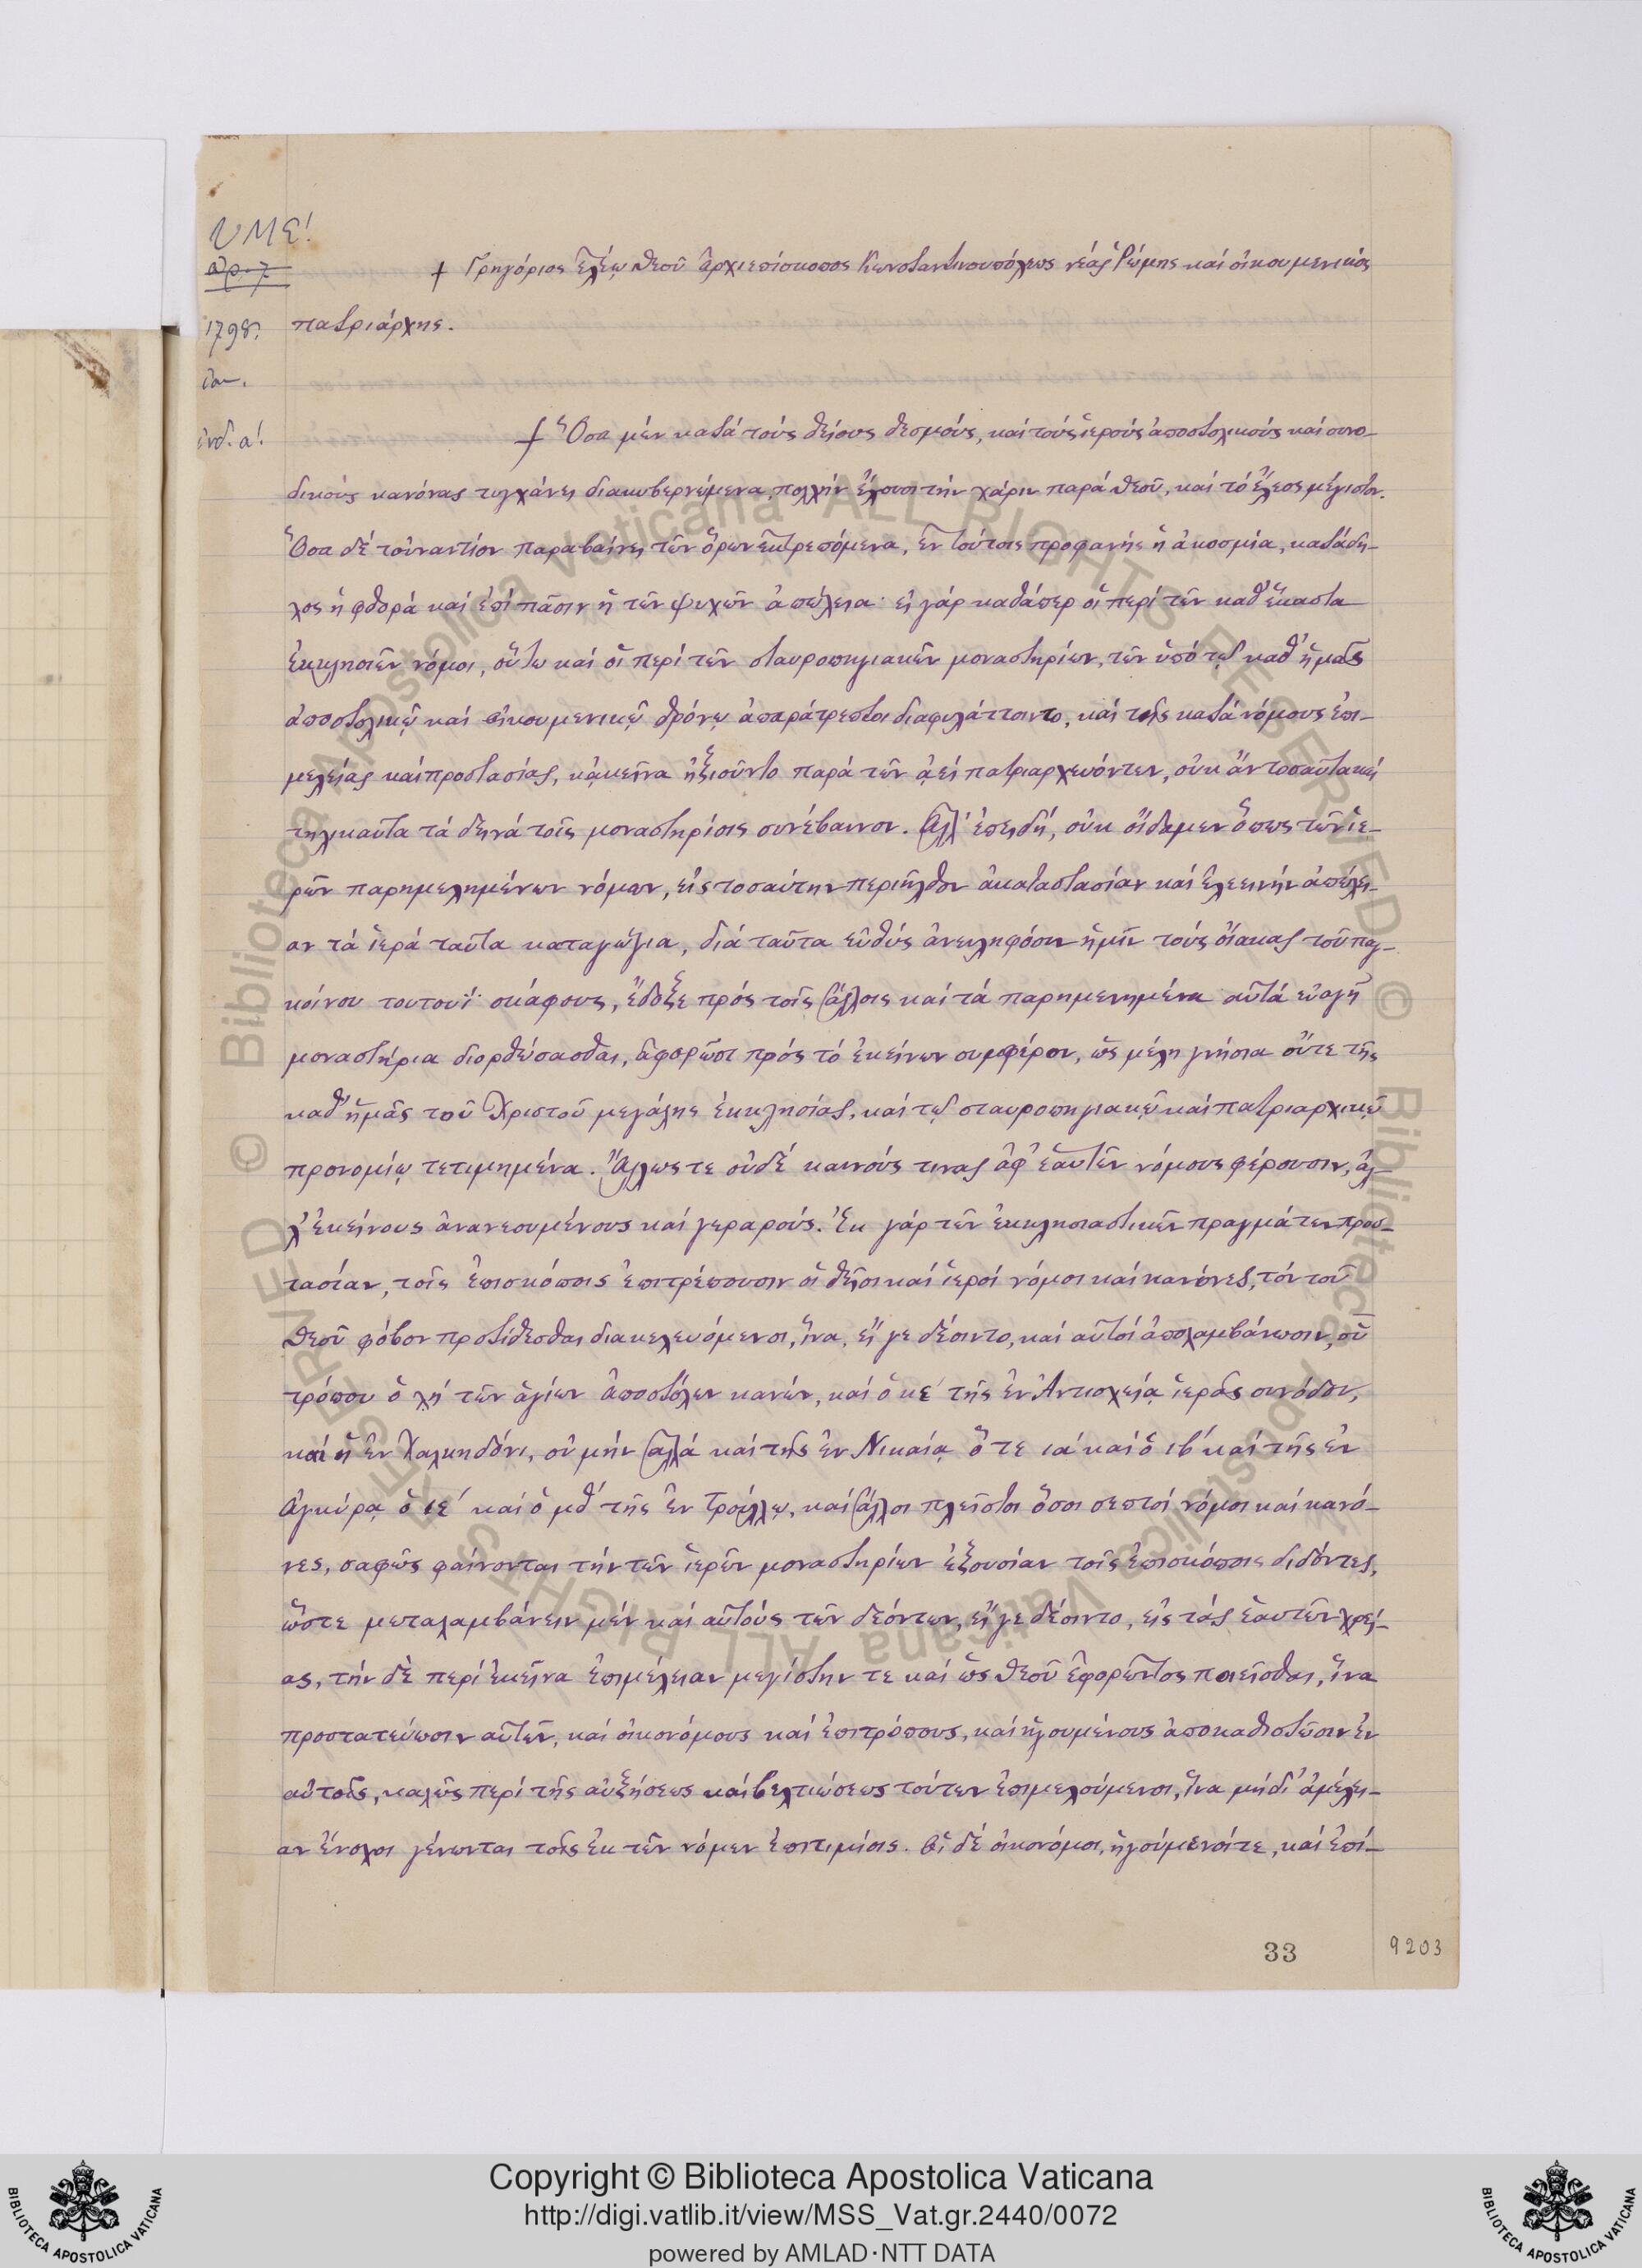 ΥΜΕ!
αρ. 7
1798.
ἰνδ. α!
† Γρηγόριος ἐλέῳ Θεοῦ ἀρχιεπίσκοπος Κωνσταντινουπόλεως νέας Ῥώμης καί οἰκουμενικός
πατριάρχης.
† Ὅσα μέν κατά τούς θείους θεσμούς, καί τούς ἱερούς ἀποστολικούς καί συνο-
δικούς κανόνας τυγχάνει διακυβερνώμενα, πολλήν ἔχουσι τήν χάριν παρά Θεοῦ, καί τό ἔλεος μέγιστον.
Ὅσα δέ τοὐναντίον παραβαίνει τῶν ὅρων ἐκτρεπόμενα, ἐν τούτοις προφανής ἡ ἀκοσμία, κατάδη-
λος ἡ φθορά καί ἐπί πᾶσιν ἡ τῶν ψυχῶν ἀπώλεια· εἰ γάρ καθάπερ οἱ περί τῶν καθ' ἕκαστα
ἐκκλησιῶν νόμοι, οὕτω καί οἱ περί τῶν σταυροπηγιακῶν μοναστηρίων, τῶν ὑπό τῷ καθ' ἡμᾶς
ἀποστολικῷ καί οἰκουμενικῷ θρόνῳ ἀπαράτρεπτοι διαφυλάττοιντο, καί τῆς κατά νόμους ἐπι-
μελείας καί προστασίας, κἀκεῖνα ἠξιοῦντο παρά τῶν ἀεί πατριαρχευόντων, οὐκ ἄν τοσαῦτα καί
τηλικαῦτα τά δεινά τοῖς μοναστηρίοις συνέβαινον. Ἀλλ' ἐπειδή, οὐκ οἴδαμεν ὅπως τῶν ἱε-
ρῶν παρημελημένων νόμων, εἰς τοσαύτην περιῆλθον ἀκαταστασίαν καί ἐλεεινήν ἀπώλει-
αν τά ἱερά ταῦτα καταγώγια, διά ταῦτα εὐθύς ἀνειληφόσιν ἡμῖν τούς οἴακας τοῦ παγ-
κοίνου τουτουΐ σκάφους, ἔδοξε πρός τοῖς ἄλλοις καί τά παρημενημένα αὐτά εὐαγῆ
μοναστήρια διορθώσασθαι, ἀφορῶσι πρός τό ἐκείνων συμφέρον, ὡς μέλη γνήσια ὄντε τῆς
καθ' ἡμᾶς τοῦ Χριστοῦ μεγάλης ἐκκλησίας, καί τῷ σταυροπηγιακῷ καί πατριαρχικῷ
προνομίῳ τετιμημένα. Ἄλλως τε οὐδέ καινούς τινας ἀφ' ἑαυτῶν νόμους φέρουσιν, ἀλ-
λ' ἐκείνους ἀνανεουμένους καί γεραρούς. Ἐκ γάρ τῶν ἐκκλησιαστικῶν πραγμάτων προσ-
τασίαν, τοῖς ἐπισκόποις ἐπιτρέπουσιν οἱ θεῖοι καί ἱεροί νόμοι καί κανόνες, τόν τοῦ
Θεοῦ φόβον προτίθεσθαι διακελευόμενοι, ἵνα, εἴ γε δέοιντο, καί αὐτοί ἀπολαμβάνωσιν, οὗ
τρόπου ὁ λη' τῶν ἁγίων ἀποστόλων κανών, καί ὁ κε' τῆς ἐν Ἀντιοχείᾳ ἱερᾶς συνόδου,
καί ἡ ἐν Χαλκηδόνι, οὐ μήν ἀλλά καί τῆς ἐν Νικαίᾳ ὅ τε ια' καί ὁ ιβ' καί τῆς ἐν
Ἀγκύρᾳ ὁ ιε' καί ὁ μθ' τῆς ἐν Τρούλλῳ, καί ἄλλοι πλεῖστοι ὅσοι σεπτοί νόμοι καί κανό-
νες, σαφῶς φαίνονται τήν τῶν ἱερῶν μοναστηρίων ἐξουσίαν τοῖς ἐπισκόποις διδόντες,
ὥστε μεταλαμβάνειν μέν καί αὐτούς τῶν δεόντων, εἴ γε δέοιντο, εἰς τάς ἑαυτῶν χρεί-
ας, τήν δέ περί ἐκεῖνα ἐπιμέλειαν μεγίστην τε καί ὡς Θεοῦ ἐφορῶντος ποιεῖσθαι, ἵνα
προστατεύωσιν αὐτῶν, καί οἰκονόμους καί ἐπιτρόπους, καί ἡγουμένους ἀποκαθιστῶσιν ἐν
αὐτοῖς, καλῶς περί τῆς αὐξήσεως καί βελτιώσεως τούτων ἐπιμελούμενοι, ἵνα μή δι' ἀμέλει-
αν ἔνοχοι γένωνται τοῖς ἐκ τῶν νόμων ἐπιτιμίοις. Οἱ δέ οἰκονόμοι, ἡγούμενοί τε, καί ἐπί-
33
9203
Copyright © Biblioteca Apostolica Vaticana
http://digi.vatlib.it/view/MSS_Vat.gr.2440/0072
powered by AMLAD·NTT DATA